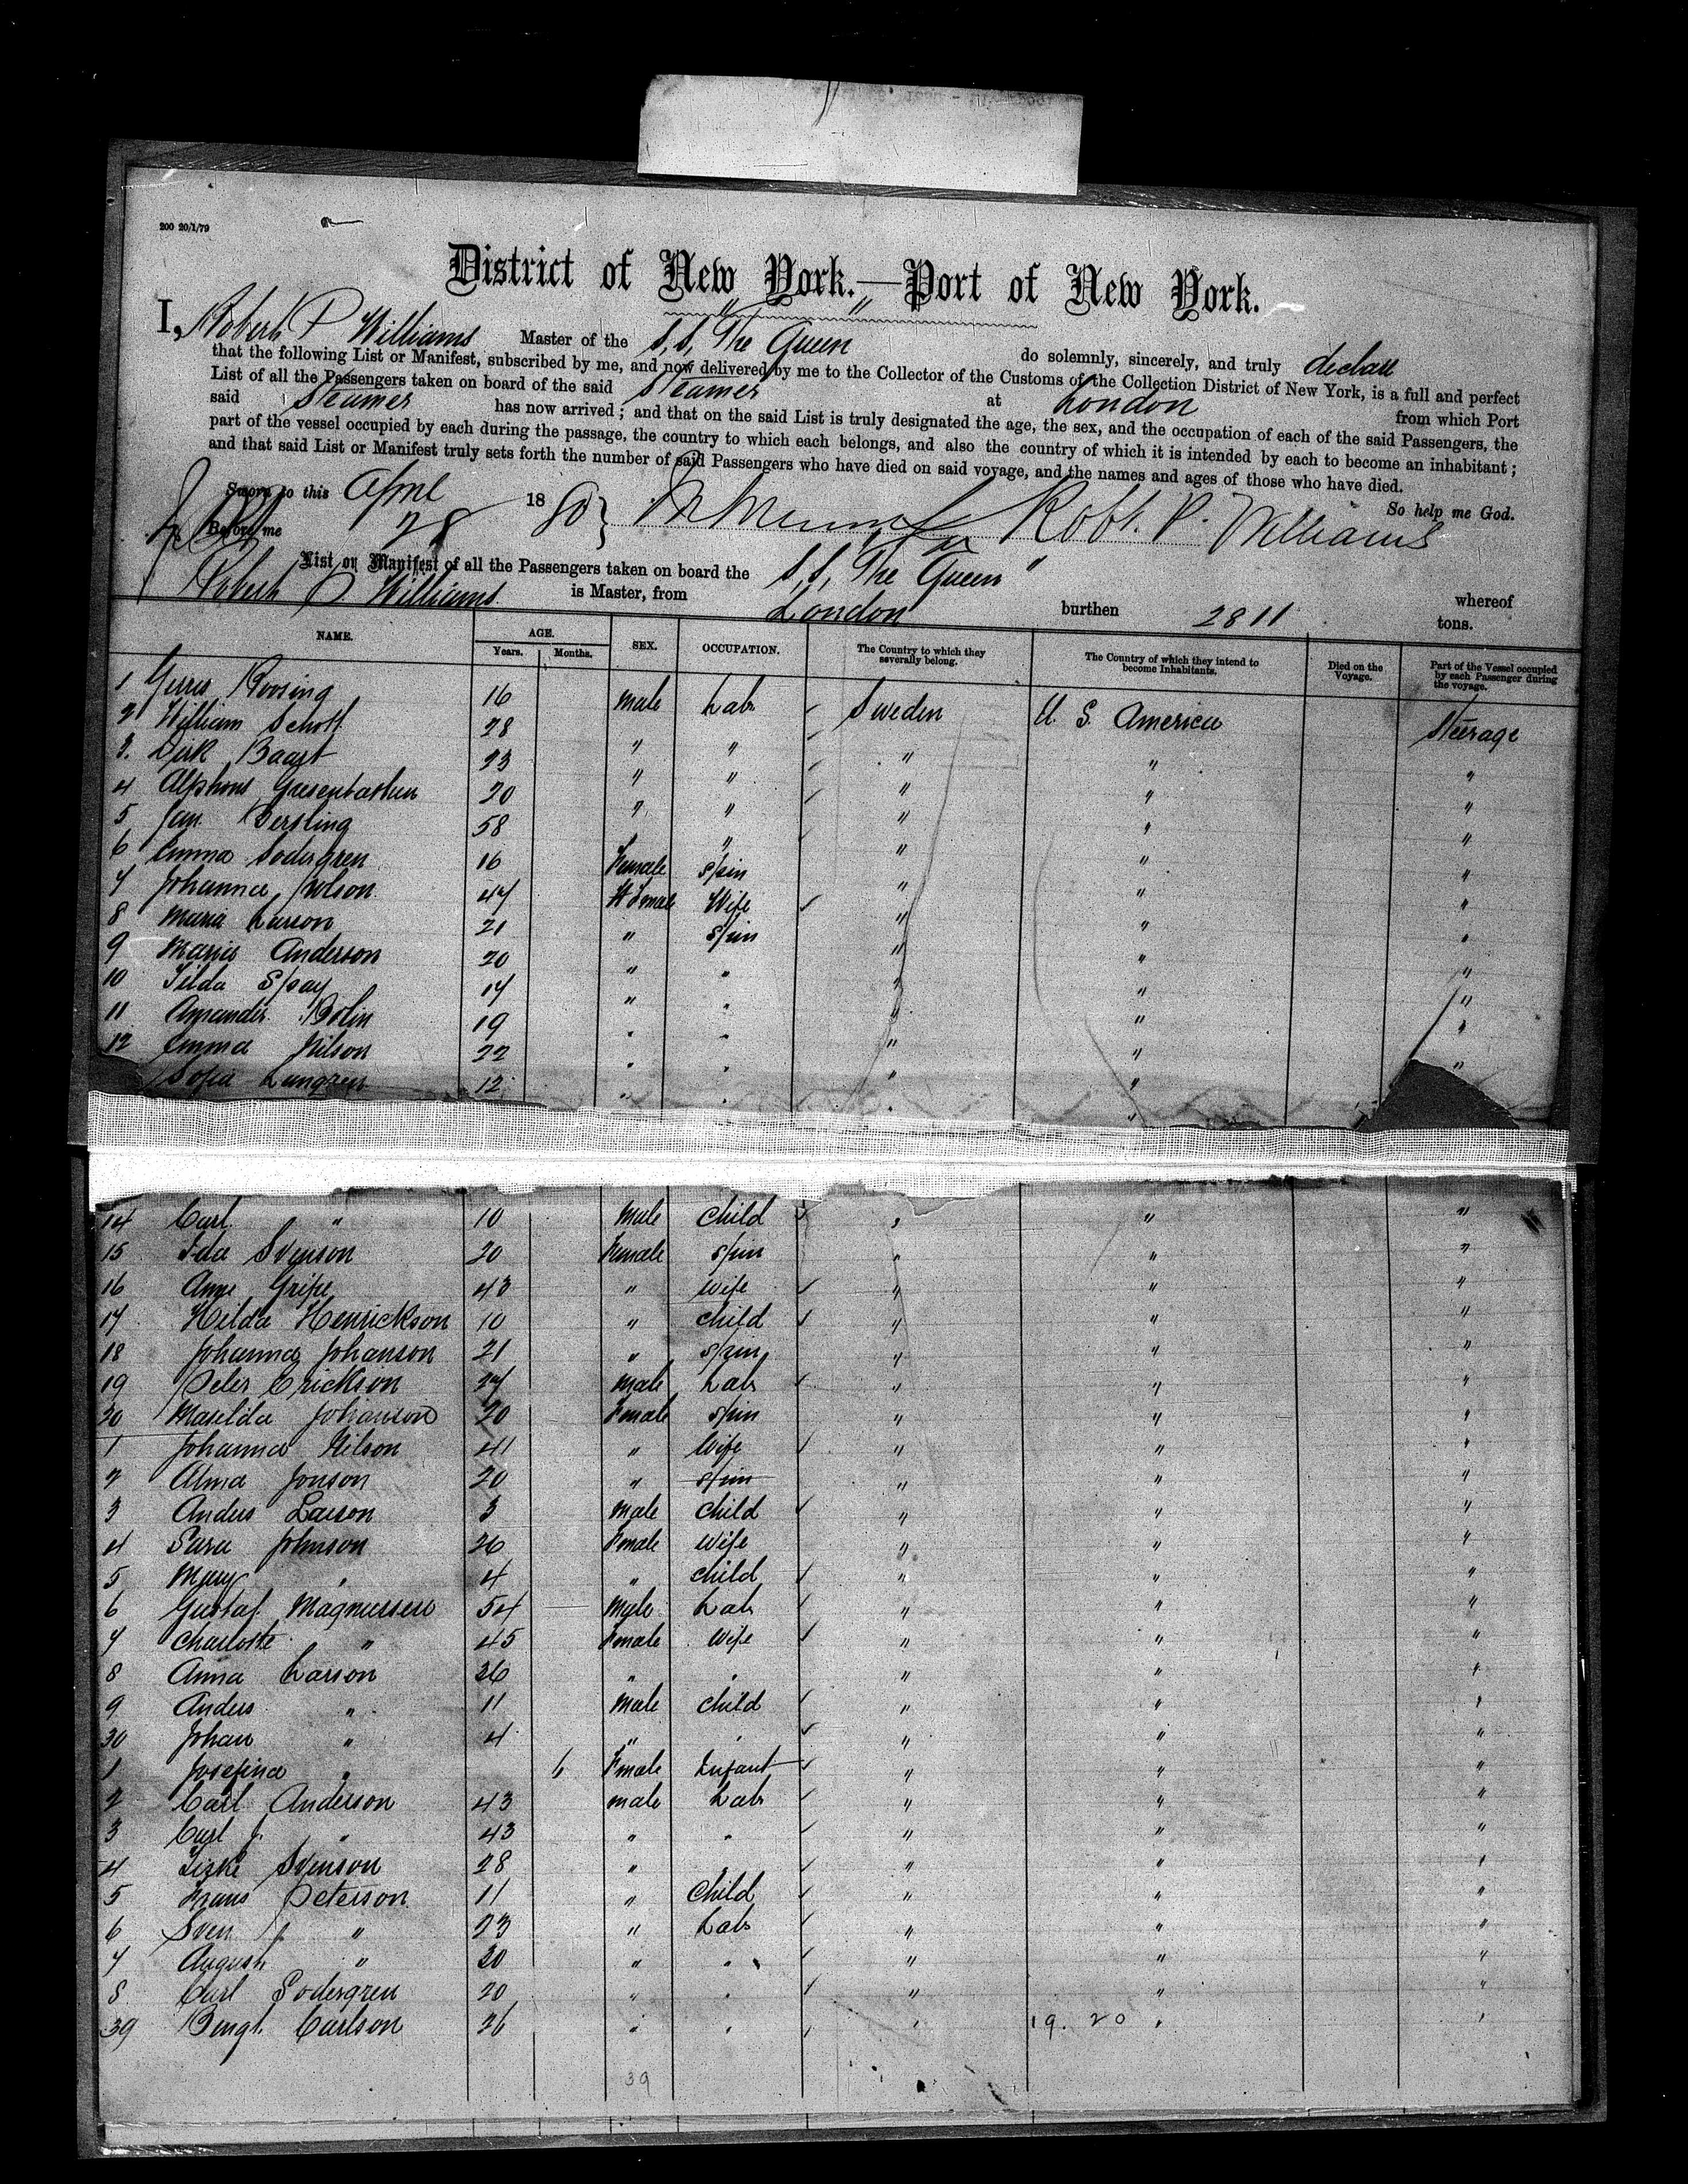 200 20/1/79
District of New York.—Port of New York.
I, Robert P Williams Master of the S.S. "The Queen" do solemnly, sincerely, and truly declare
that the following List or Manifest, subscribed by me, and now delivered by me to the Collector of the Customs of the Collection District of New York, is a full and perfect
List of all the Passengers taken on board of the said Steamer at London from which Port
said Steamer has now arrived; and that on the said List is truly designated the age, the sex, and the occupation of each of the said Passengers, the
part of the vessel occupied by each during the passage, the country to which each belongs, and also the country of which it is intended by each to become an inhabitant;
and that said List or Manifest truly sets forth the number of said Passengers who have died on said voyage, and the names and ages of those who have died.
So help me God.
Sworn to this April 28 1880
Before me Robt. P. Williams
List or Manifest of all the Passengers taken on board the S.S. "The Queen" whereof
Robert P Williams is Master, from London burthen 2811 tons.
NAME. AGE. SEX. OCCUPATION. The Country to which they severally belong. The Country of which they intend to become Inhabitants. Died on the Voyage. Part of the Vessel occupied by each Passenger during the voyage.
Years. Months.
1 Roosing 16 male Labr Sweden U. S. America Steerage
2 William Schott 28 " " " " "
3. Dirk Baart 23 " " " " "
4 Alphons 20 " " " " "
5 Jan 58 " " " " "
6 Emma Sodergren 16 Female Spin " " "
7 Johanna 47 Female Wife " " "
8 Maria Larson 21 " Spin " " "
9 Maria Anderson 20 " " " " "
10 Tilda Spay 14 " " " " "
11 Amander Bolin 19 " " " " "
12 Emma Nilson 22 " " " " "
Sofia Lungren 12 " " " "
14 Carl " 10 Male Child " " "
15 Ida Svenson 20 Female Spin " " "
16 Anne Gripe 43 " Wife " " "
17 Hilda Henrickson 10 " Child " " "
18 Johanna Johanson 21 " Spin " " "
19 Peter Erickson 27 Male Labr " " "
20 Matilda Johanson 20 Female Spin " " "
1 Johanna Nilson 41 " Wife " " "
2 Alma Jonson 20 " Spin " " "
3 Anders Larson 3 Male Child " " "
4 Sara Johnson 26 Female Wife " " "
5 Mary " 4 " Child " " "
6 Gustaf Magnussen 54 Male Labr " " "
7 Charlotte " 45 Female Wife " " "
8 Anna Larson 36 " " " " "
9 Anders " 11 Male Child " " "
30 Johan " 4 " " " " "
1 Josefina " 6 Female Infant " " "
2 Carl Anderson 43 male Labr " " "
3 Carl J. " 43 " " " " "
4 Svenson 28 " " " " "
5 Frans Peterson 11 " Child " " "
6 Sven J " 23 " Labr " " "
7 August " 20 " " " " "
8 Carl Sodergren 20 " " " " "
39 Bengt Carlson 26 " " " 19. 20 " "
39